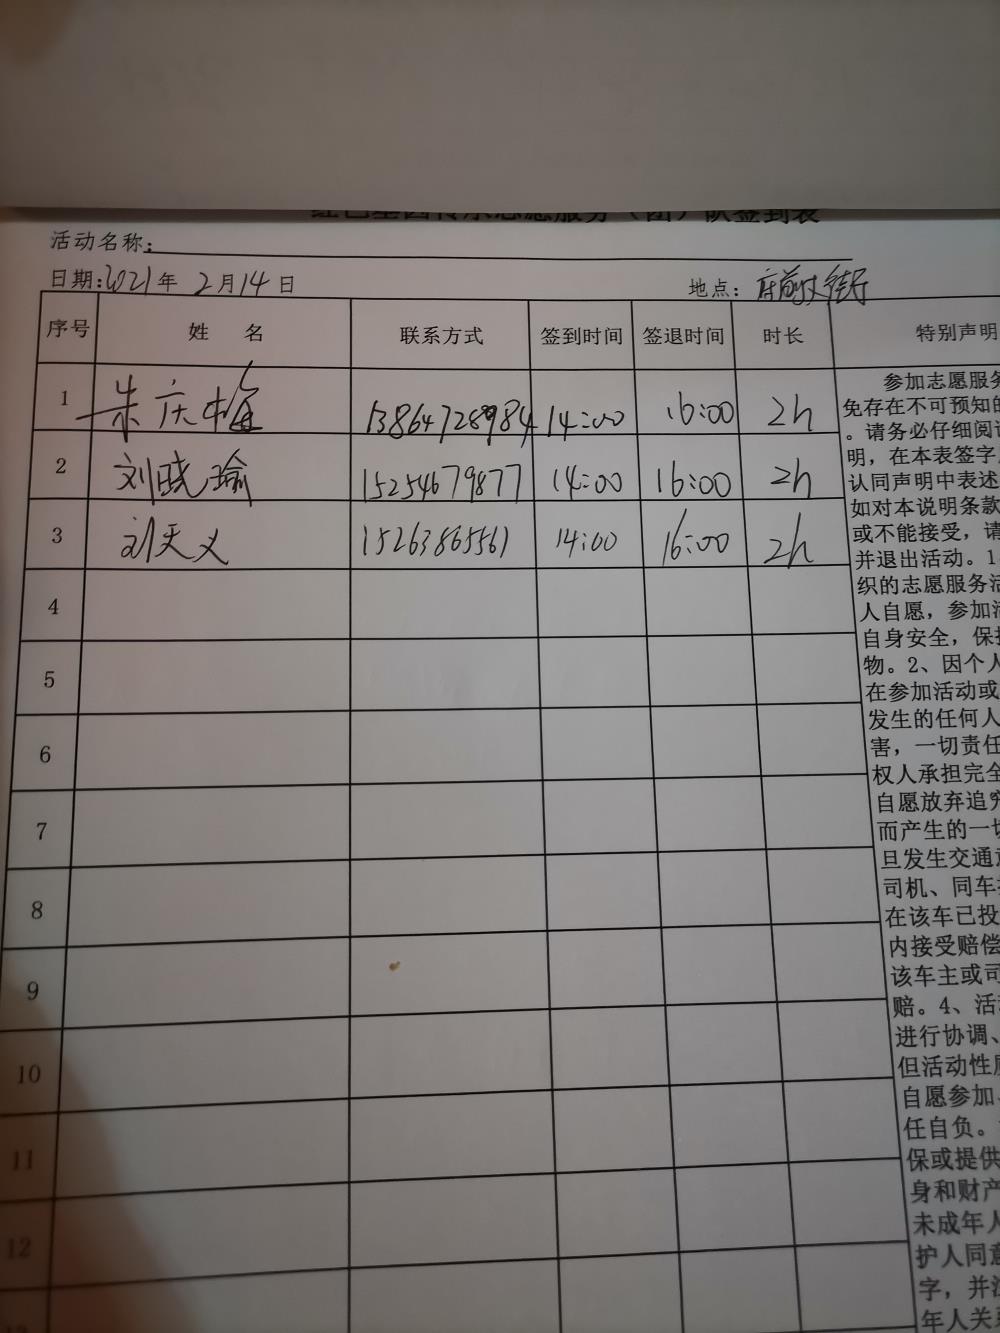 红色基因传承志愿服务（团）队签到表
活动名称：
日期：2021年 2月14日 地点：府前大街
序号 姓 名 联系方式 签到时间 签退时间 时长 特别声明
1 朱庆梅 13864728984 14:00 16:00 2h
2 刘晓瑜 15254679877 14:00 16:00 2h
3 刘天义 15263865561 14:00 16:00 2h
4
5
6
7
8
9
10
11
12
13
参加志愿服务
免存在不可预知的
。请务必仔细阅读
明，在本表签字
认同声明中表述
如对本说明条款
或不能接受，请
并退出活动。1
织的志愿服务活
人自愿，参加活
自身安全，保
物。2、因个人
在参加活动或
发生的任何人
害，一切责任
权人承担完全
自愿放弃追究
而产生的一切
旦发生交通
司机、同车
在该车已投
内接受赔偿
该车主或司
赔。4、活
进行协调、
但活动性质
自愿参加
任自负。
保或提供
身和财产
未成年人
护人同意
字，并
年人关